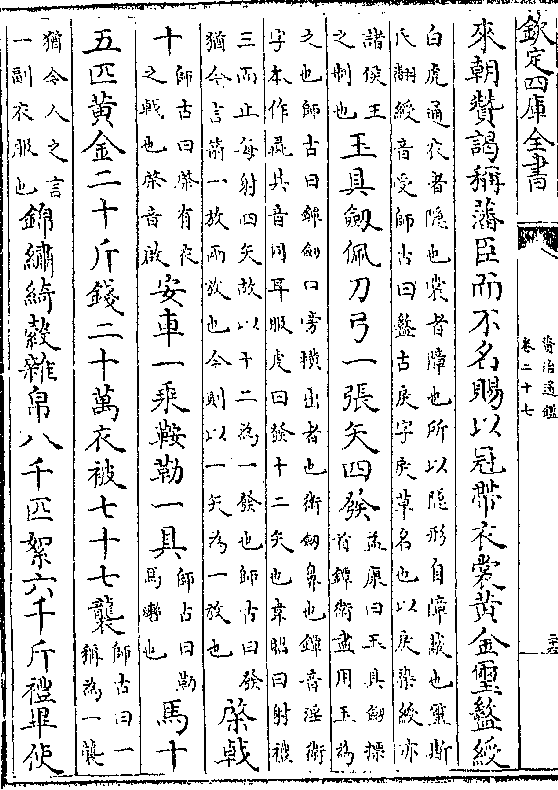 欽定四庫全書
資治通鑑
卷二十七
來朝贊謁稱藩臣而不名賜以冠帶衣裳黃金璽盭綬
白虎通衣者隱也裳者障也所以隱形自障蔽也璽斯
氏翻綬音受師古曰盭古戾字戾草名也以戾染綬亦
諸侯王
之制也
玉具劍佩刀弓一張矢四發
孟康曰玉具劍摽
首鐔衛盡用玉為
之也師古曰鐔劍口旁橫出者也衛劍鼻也鐔音淫衛
字本作璏其音同耳服虔曰發十二矢也韋昭曰射禮
三而止每射四矢故以十二為一發也師古曰發
猶今言箭一放兩放也今則以一矢為一放也
棨戟
十
師古曰棨有衣
之戟也棨音啟
安車一乘鞍勒一具
師古曰勒
馬轡也
馬十
五匹黃金二十斤錢二十萬衣被七十七襲
師古曰一
稱為一襲
猶今人之言
一副衣服也
錦繡綺縠雜帛八千匹絮六千斤禮畢使